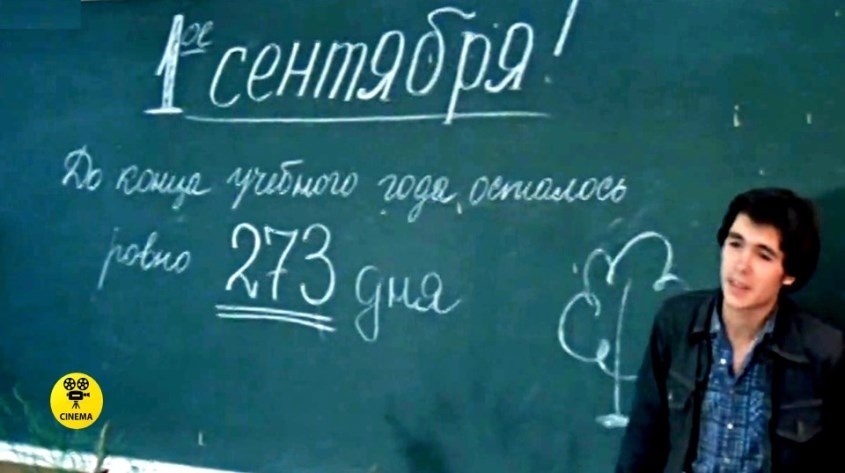 1ое сентября!
До конца учебного года осталось
ровно 273 дня
CINEMA